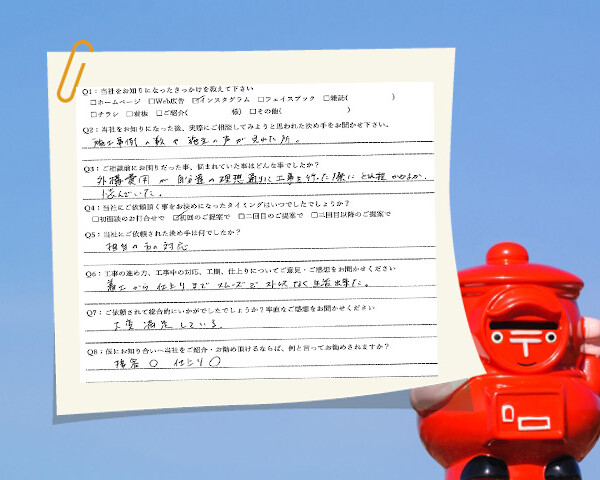 Q1：当社をお知りになったきっかけを教えて下さい
□ホームページ □Web広告 ☑インスタグラム □フェイスブック □雑誌( )
□チラシ □看板 □ご紹介( 様) □その他( )
Q2：当社をお知りになった後、実際にご相談してみようと思われた決め手をお聞かせ下さい。
施工事例の数や施主の声が見れた所。
Q3：ご相談前にお困りだった事、悩まれていた事はどんな事でしたか？
外構費用が自分達の理想通りに工事を行った際にどれ程かかるか、
悩んでいた。
Q4：当社にご依頼頂く事をお決めになったタイミングはいつでしたでしょうか？
□初面談のお打合せで ☑初回のご提案で □二回目のご提案で □三回目以降のご提案で
Q5：当社にご依頼された決め手は何でしたか？
担当の方の対応
Q6：工事の進め方、工事中の対応、工期、仕上りについてご意見・ご感想をお聞かせください
着工から仕上りまでスムーズでストレスなく生活出来た。
Q7：ご依頼されて総合的にいかがでしたでしょうか？率直なご感想をお聞かせください
大変満足している。
Q8：仮にお知り合いへ当社をご紹介・お勧め頂けるならば、何と言ってお勧めされますか？
接客○ 仕上り○